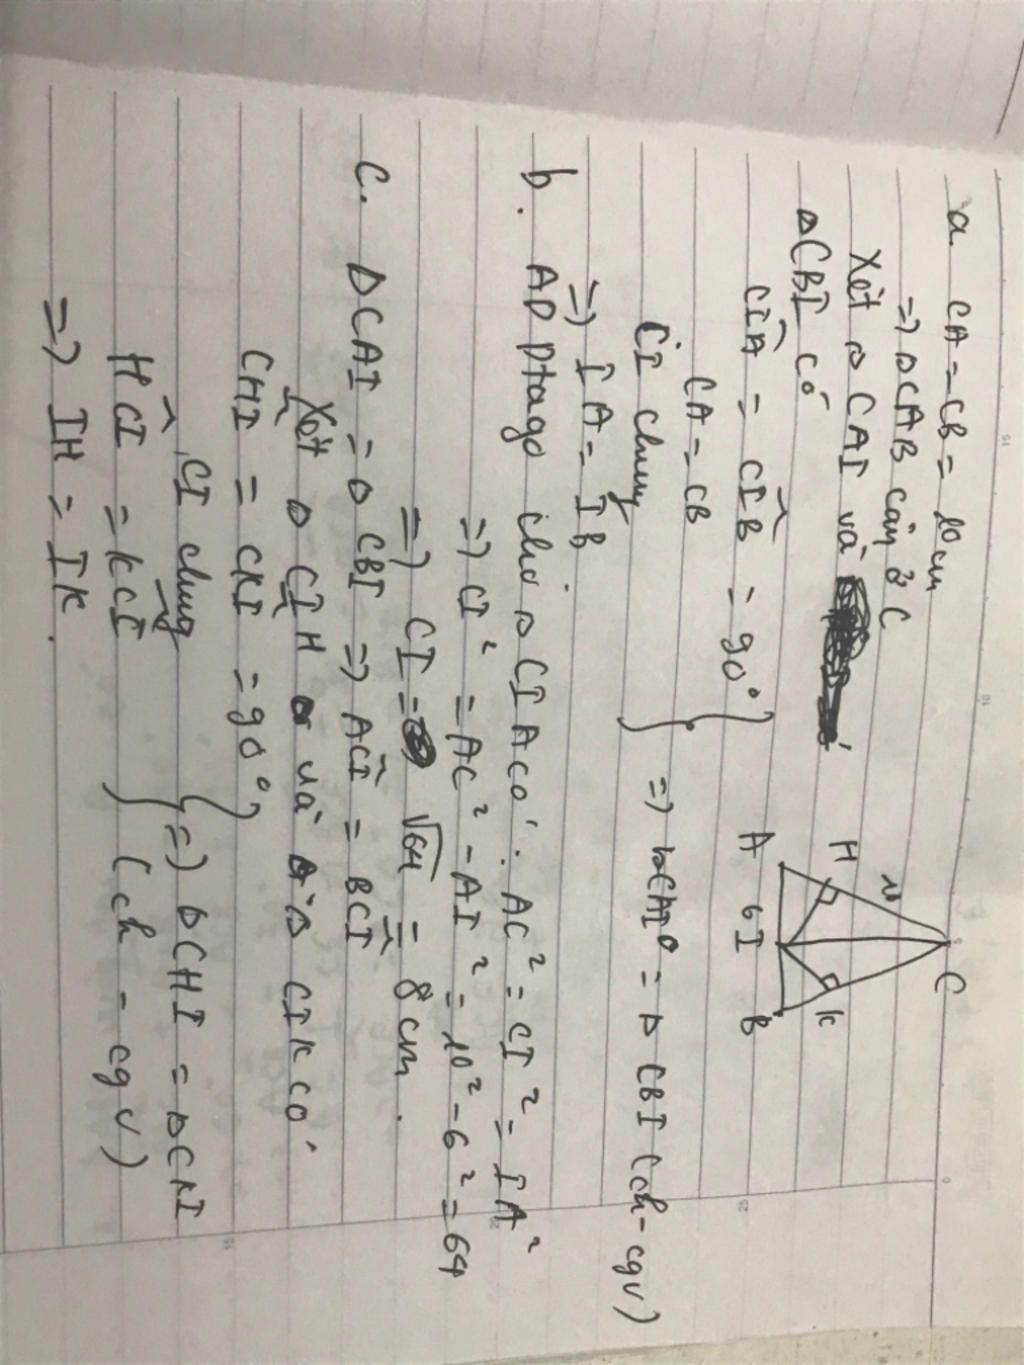 a. CA = CB = 10 cm
=) ΔCAB cân ở C
Xét Δ CAI và
ΔCBI có
CIA = CIB = 90°
CA = CB
CI chung
=) ΔCAI = Δ CBI (ch - cgv)
=) IA = IB
b. AD Ptago cho Δ CIA có: AC² = CI² = IA²
=) CI² = AC² - AI² = 10² - 6² = 64
=) CI = √64 = 8 cm.
c. ΔCAI = Δ CBI =) ACI = BCI
Xét Δ CIH và Δ CIK có
CHI = CKI = 90°
CI chung
=) ΔCHI = ΔCKI
HCI = KCI
(ch - cgv)
=) IH = IK.
C
10
H
K
A
6
I
B